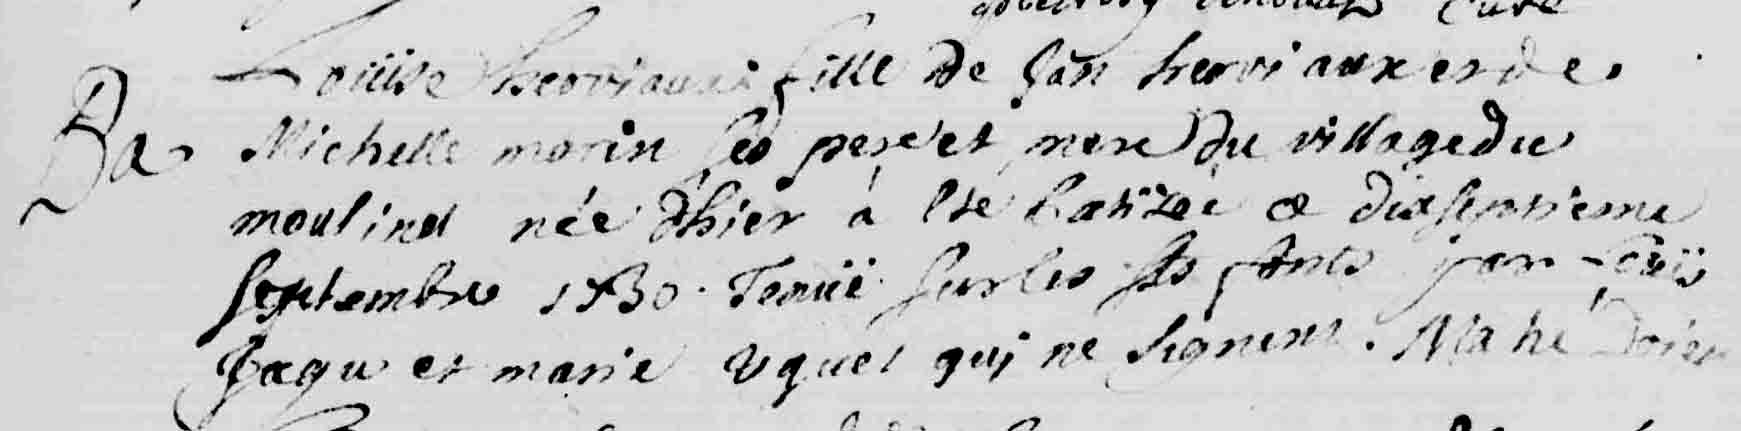 curé
Louïse herviaux fille de Jan herviaux et de
Ba Michelle morin ses pere et mere du village du
moulinet née d'hier à été batizée ce dixseptieme
septembre 1730. Tenüe sur les sts fonts par Loüis
Jaqu et marie uquet qui ne signent. Mahé Doien